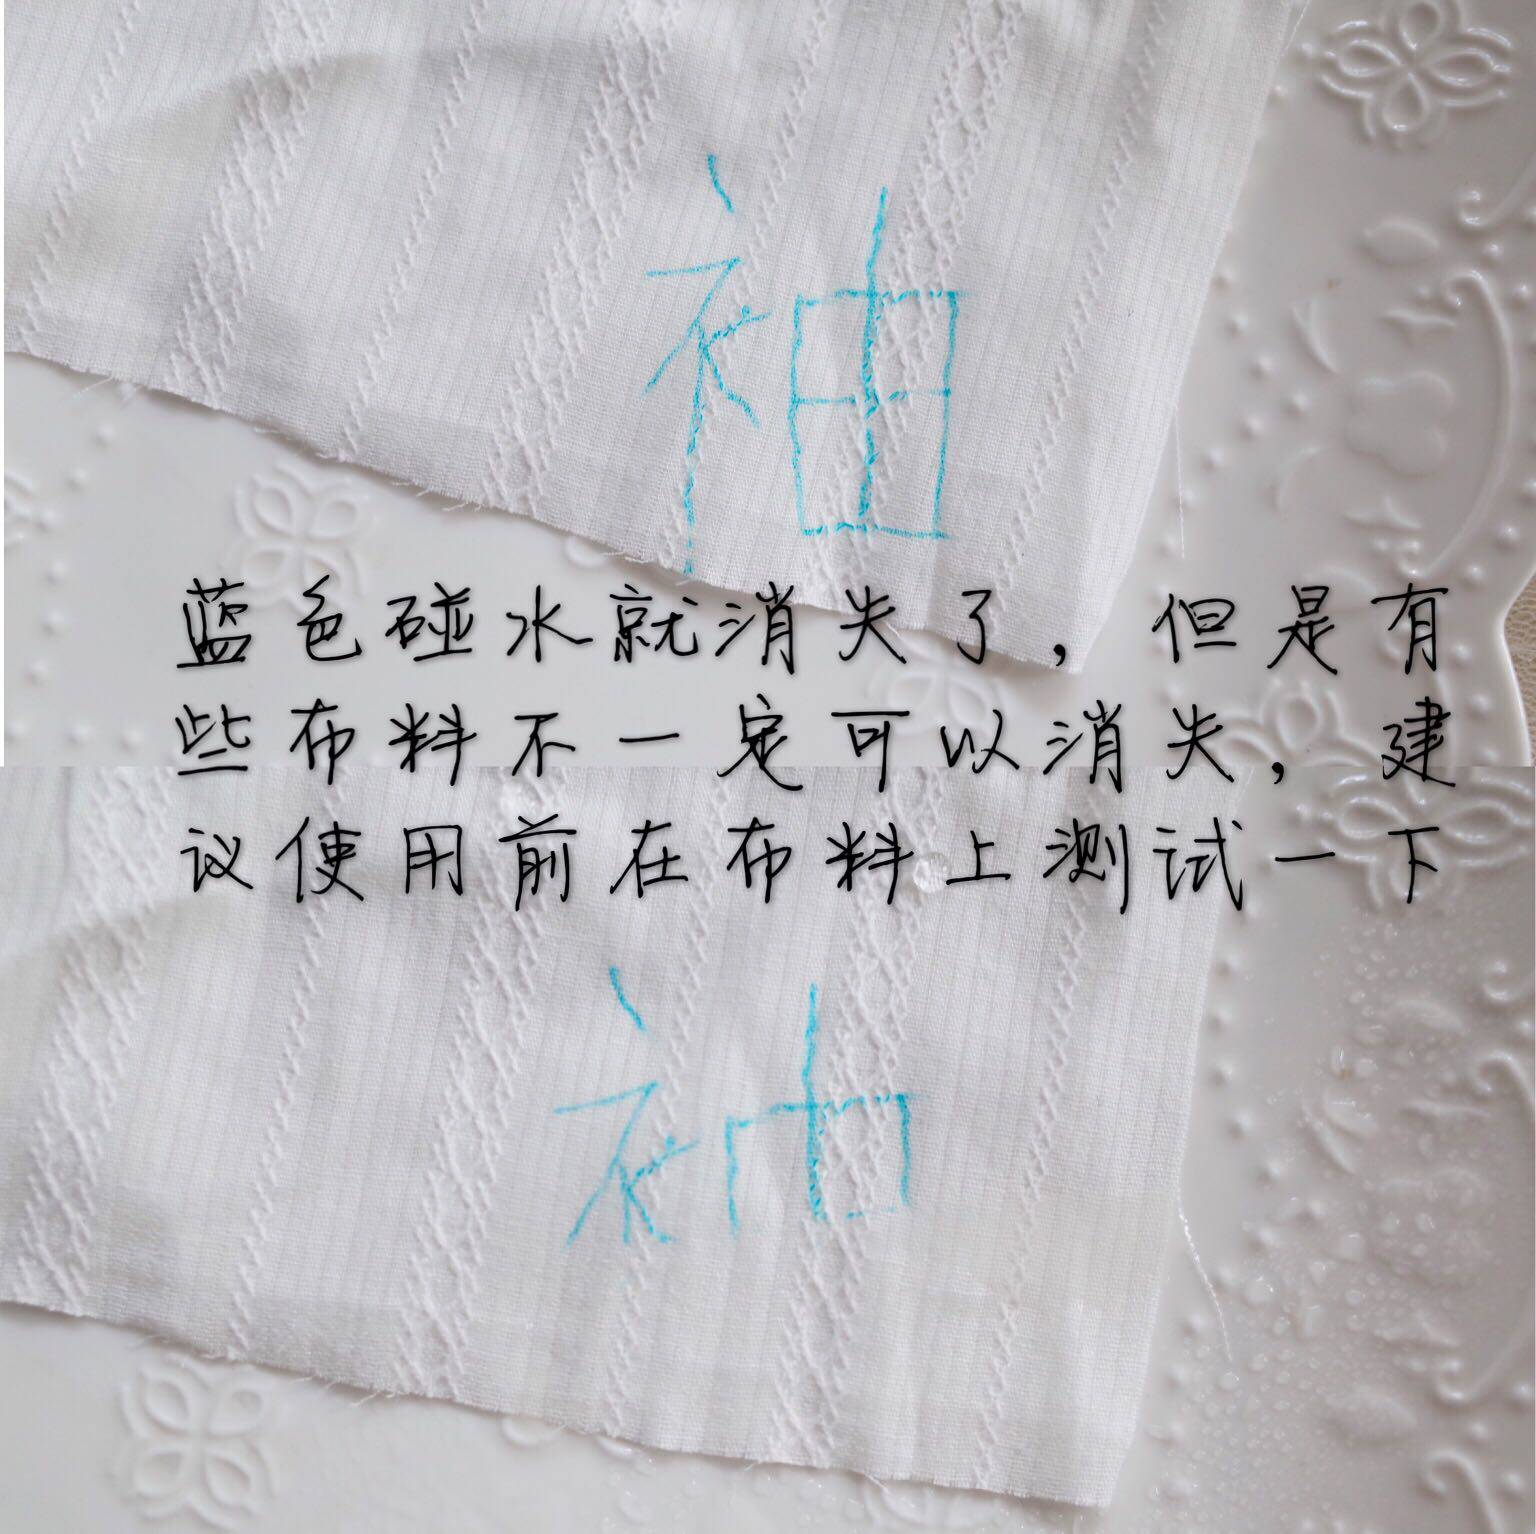 袖
蓝色碰水就消失了，但是有
些布料不一定可以消失，建
议使用前在布料上测试一下